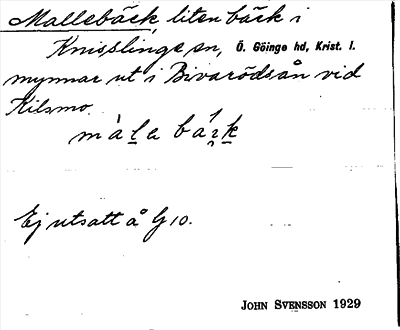 Mallebäck, liten bäck i
Knisslinge sn, Ö. Göinge hd, Krist. l.
mynnar ut i Bivarödsån vid
Kilsmo.
måla bák
Ej utsatt å G 10.
JOHN SVENSSON 1929